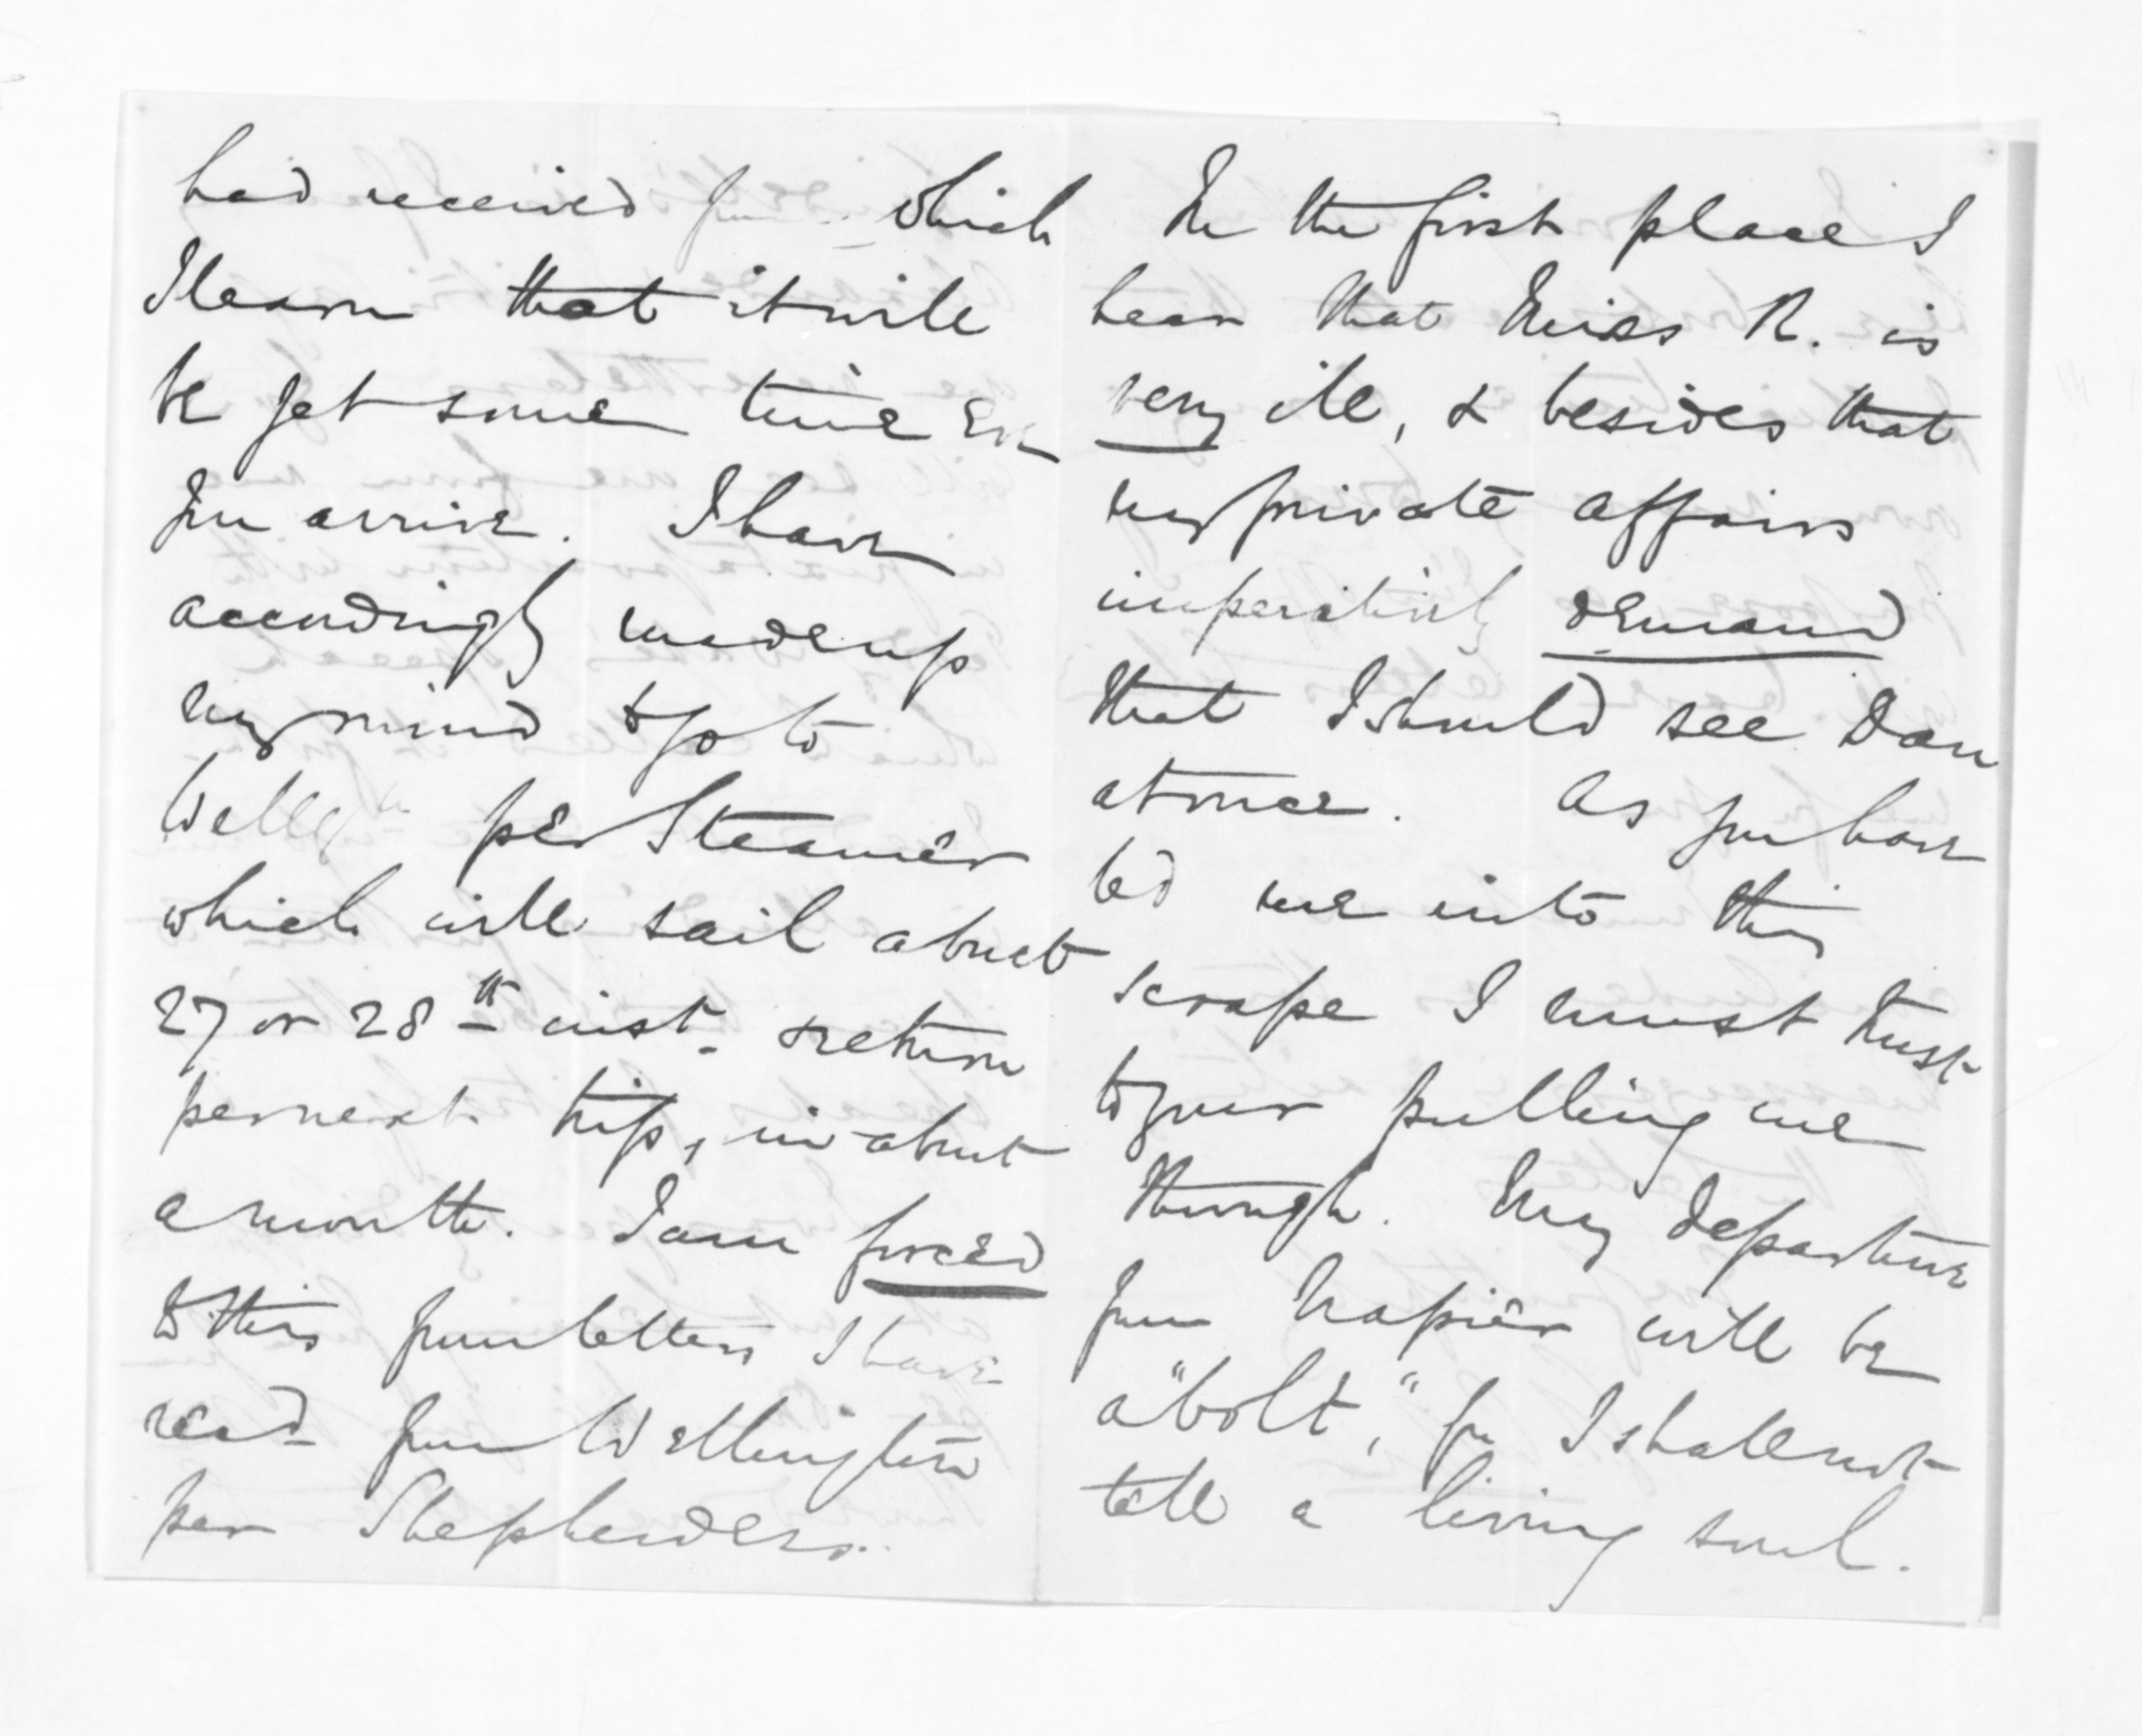 had received from which
I learn that it will
be yet some time ere
you arrive. I have
accordingly made up
my mind to go to
Wellgtn per Steamer
which will sail about
27 or 28th inst. & return
per next trip, in about
a month. I am forced
to this from letters I have
recd from Wellington
per Shepherdess.
In the first place I
hear that Miss R. is
very ill, & besides that
my private affairs
imperatively demand
that I should see Dan
at once. As you have
led me into this
scrape I must trust
to your pulling me
through. My departure
from Napier will be
a "bolt," for I shall not
tell a living soul.